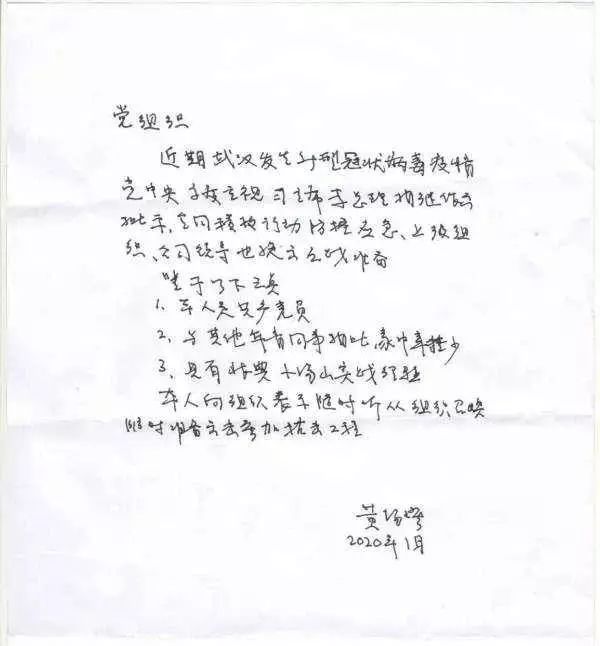 党组织
近期武汉发生新型冠状病毒疫情
党中央高度重视 习主席李总理相继作出
批示,全国积极行动防控应急、上级组
织、公司领导也提出了战准备
鉴于以下三点
1. 本人是共产党员
2. 与其他年青同事相比,家中牵挂少
3. 具有非典小汤山实战经验
本人向组织表示随时听从组织召唤
随时准备出击参加抗击工程
黄
2020年1月